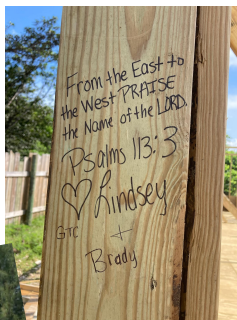 From the East to
the West PRAISE
the Name of the LORD.
Psalms 113:3
♡ Lindsey
GTC +
Brady